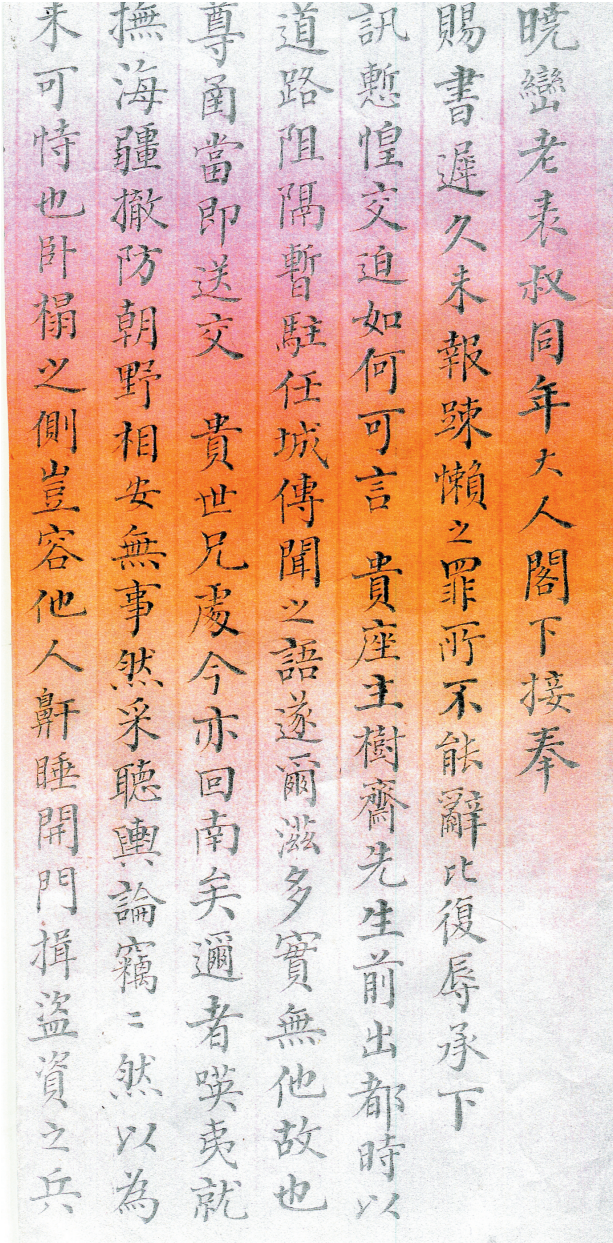 曉巒老表叔同年大人閣下接奉
賜書遲久未報踈懶之罪所不能辭比復辱承下
訊慙惶交迫如何可言 貴座主樹齋先生前出都時以
道路阻隔暫駐任城傳聞之語遂爾滋多實無他故也
尊函當即送交 貴世兄處今亦回南矣邇者暎夷就
撫海疆撤防朝野相安無事然采聽輿論竊〻然以為
未可恃也卧榻之側豈容他人鼾睡開門揖盜資之兵